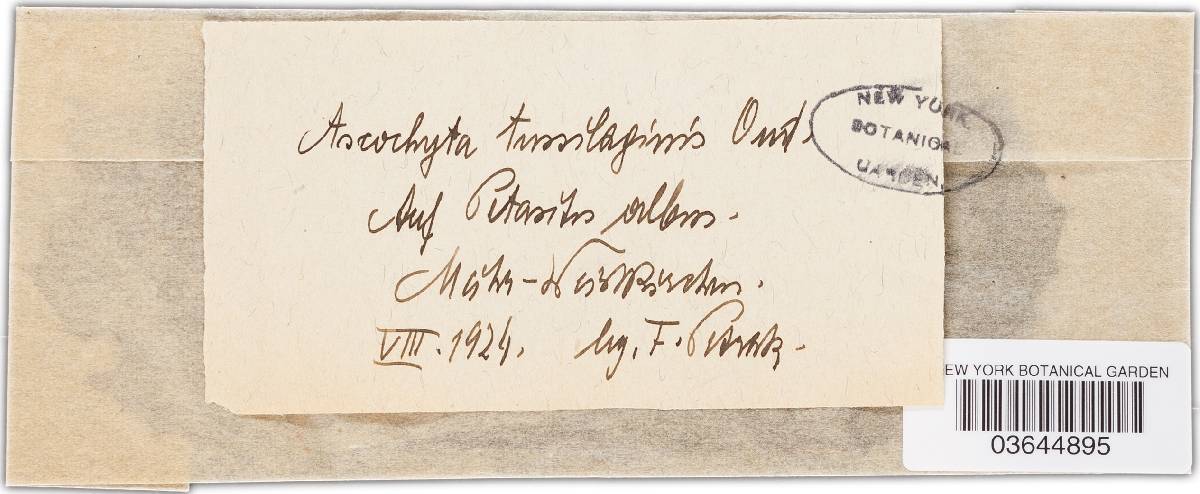 Ascochyta tussilaginis Oud.
Auf Petasites albus.
Mähr-Weisskirchen.
VIII. 1924. leg. F. Petrak.
NEW YORK
BOTANICAL
GARDEN.
NEW YORK BOTANICAL GARDEN
03644895